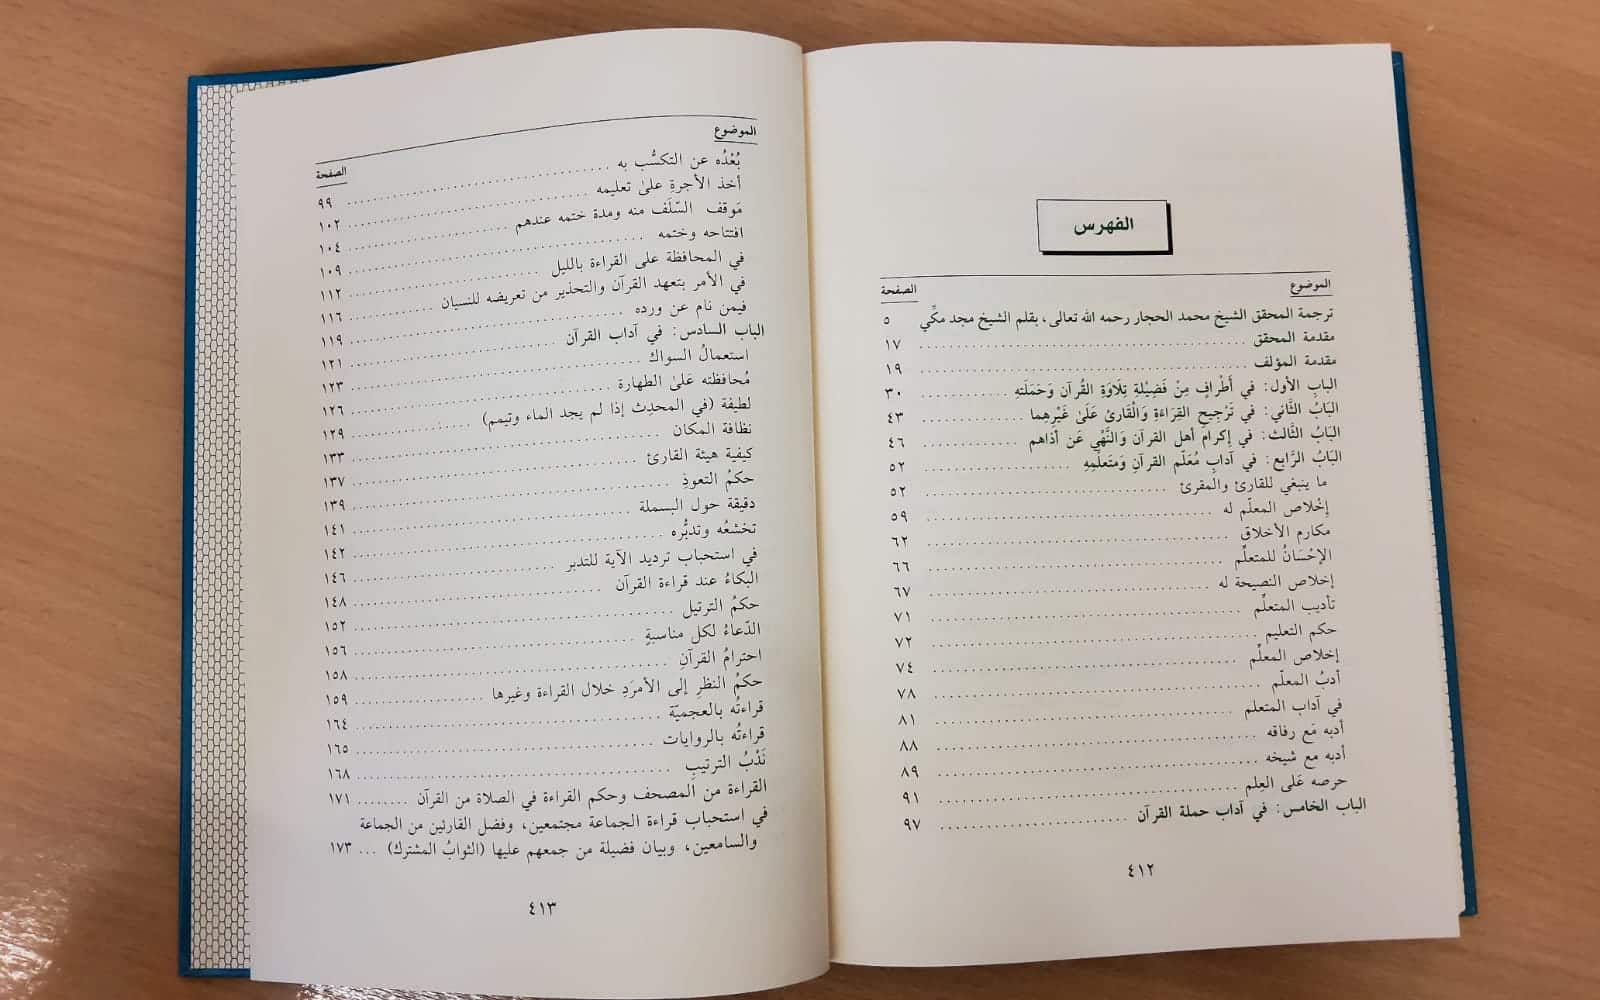 الفهرس
الموضوع الصفحة
ترجمة المحقق الشيخ محمد الحجار رحمه الله تعالى، بقلم الشيخ مجد مكّي ٥
مقدمة المحقق ........ ١٧
مقدمة المؤلف ........ ١٩
الباب الأول: في أَطْرافٍ مِنْ فَضيْلةِ تِلَاوَةِ القُرآن وَحَمَلَتهِ ........ ٣٠
البَابُ الثَّاني: في تَرْجيحِ القِرَاءَةِ وَالْقَارئ عَلَىٰ غَيْرِهِما ........ ٤٣
البَابُ الثَّالث: في إكرام أهل القرآن وَالنَّهْي عَن أذَاهم ........ ٤٦
البَابُ الرَّابع: في آدابِ مُعَلّم القرآنِ وَمتَعلِّمِهِ ........ ٥٢
ما ينبغي للقارئ والمقرئ ........ ٥٢
إخْلاص المعلّم له ........ ٥٩
مكارم الأخلاق ........ ٦٢
الإحْسَانُ للمتعلِّم ........ ٦٦
إخلاص النصيحة له ........ ٦٧
تأديب المتعلِّم ........ ٧١
حكم التعليم ........ ٧٢
إخلاص المعلِّم ........ ٧٤
أدبُ المعلّم ........ ٧٨
في آداب المتعلم ........ ٨١
أدبه مَع رفاقه ........ ٨٨
أدبه مع شيخه ........ ٨٩
حرصه عَلى العِلم ........ ٩١
الباب الخامس: في آداب حملة القرآن ........ ٩٧
٤١٢
الموضوع الصفحة
بُعْدُه عن التكسُّب به ........ ٩٩
أخذ الأجرةِ علىٰ تعليمه ........ ١٠٢
مَوقف السّلَف منه ومدة ختمه عندهم ........ ١٠٤
افتتاحه وختمه ........ ١٠٩
في المحافظة على القراءة بالليل ........ ١١٢
في الأمر بتعهد القرآن والتحذير من تعريضه للنسيان ........ ١١٦
فيمن نام عن ورده ........ ١١٩
الباب السادس: في آداب القرآن ........ ١٢١
استعمالُ السواك ........ ١٢٣
مُحافظته عَلىٰ الطهارة ........ ١٢٦
لطيفة (في المحدِث إذا لم يجد الماء وتيمم) ........ ١٢٩
نظافة المكان ........ ١٣٣
كيفية هيئة القارئ ........ ١٣٧
حكمُ التعوذِ ........ ١٣٩
دقيقة حول البسملة ........ ١٤١
تخشعُه وتدبُّره ........ ١٤٢
في استحباب ترديد الآية للتدبر ........ ١٤٦
البكاءُ عند قراءة القرآن ........ ١٤٨
حكمُ الترتيل ........ ١٥٢
الدّعاءُ لكل مناسبةٍ ........ ١٥٦
احترامُ القرآنِ ........ ١٥٨
حكمُ النظرِ إلى الأمرَدِ خلال القراءة وغيرها ........ ١٥٩
قراءتُه بالعجميّة ........ ١٦٤
قراءتُه بالروايات ........ ١٦٥
نَدْبُ الترتيبِ ........ ١٦٨
القراءة من المصحف وحكم القراءة في الصلاة من القرآن ........ ١٧١
في استحباب قراءة الجماعة مجتمعين، وفضل القارئين من الجماعة
والسامعين، وبيان فضيلة من جمعهم عليها (الثوابُ المشترك) ... ١٧٣
٤١٣